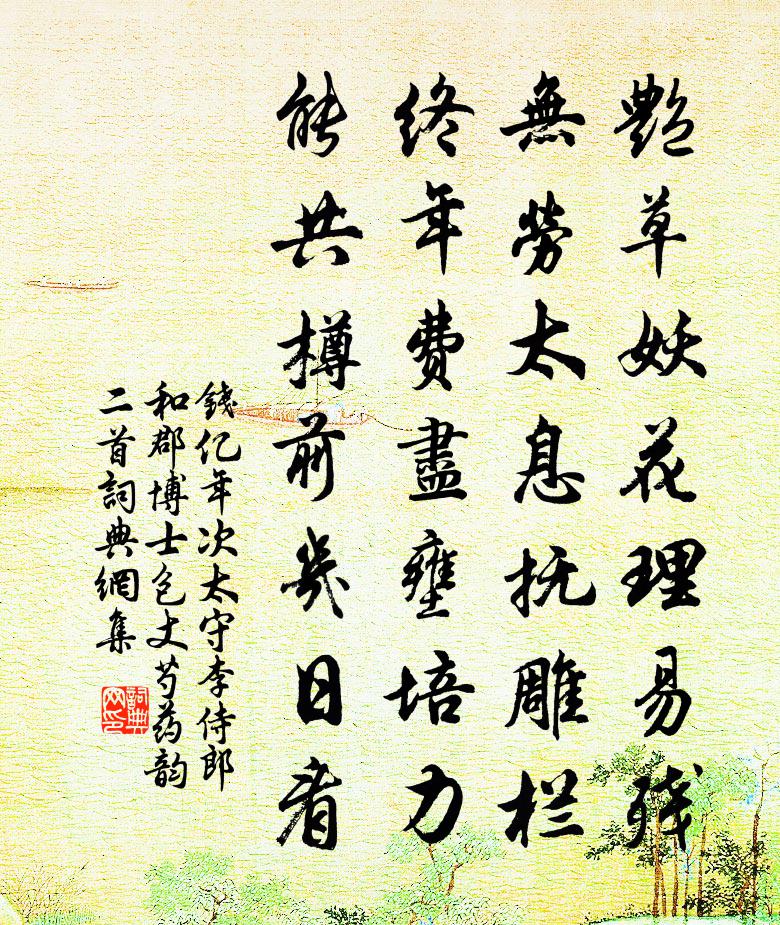 艷草妖花理易残
無勞太息抚雕栏
終年費盡壅培力
能共樽前幾日看
錢亿年次太守李侍郎
和郡博士包丈芍药韵
二首詞典網集
詞典网印